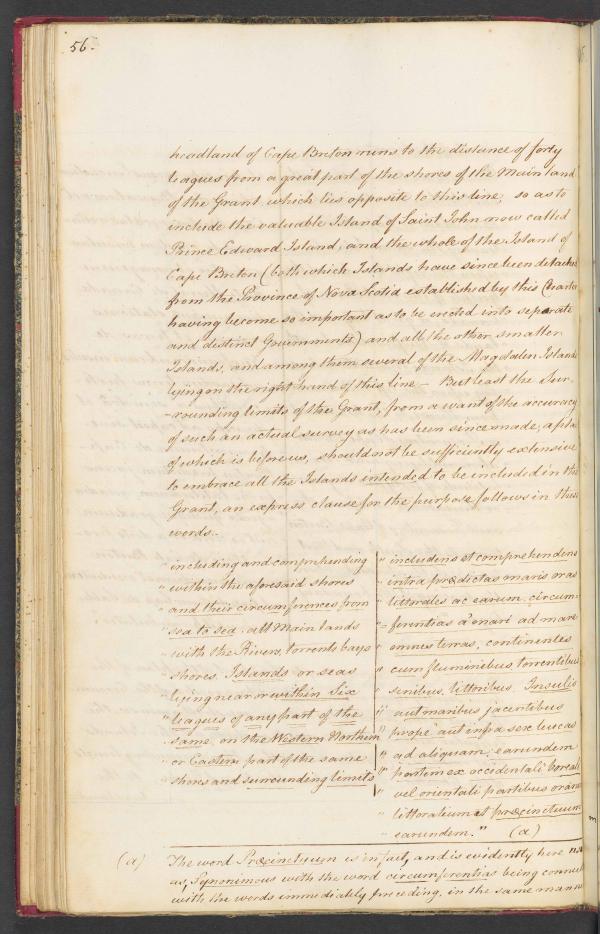 56.
headland of Cape Breton runs to the distance of forty
leagues from a great part of the shores of the Main land
of the Grant which lies opposite to this line; so as to
include the valuable Island of Saint John now called
Prince Edward Island, and the whole of the Island of
Cape Breton (both which Islands have since been detached
from the Province of Nova Scotia established by this Charter
having become so important as to be erected into separate
and distinct Governments) and all the other smaller
Islands, and among them several of the Magdalen Islands
lying on the right hand of this line - But least the Sur-
-rounding limits of the Grant, from a want of the accuracy
of such an actual survey as has been since made, a plan
of which is before us, should not be sufficiently extensive
to embrace all the Islands intended to be included in the
Grant, an express clause for the purpose follows in these
words..
" including and comprehending
" within the aforesaid shores
" and their circumferences from
" sea to sea, all Main lands
" with the Rivers, torrents bays
" shores, Islands or seas
" lying near or within Six
" leagues of any part of the
" same, on the Western Northern
" or Eastern part of the same
" shores and surrounding limits
" includens et comprehendens
" intra prædictas maris oras
" littorales ac earum, circum-
"-ferentias a mari ad mare
" omnes terras, continentes
" cum fluminibus torrentibus
" sinibus, littoribus, Insulis
" aut maribus jacentibus
" prope aut infra sex leucas
" ad aliquam, earundem
" partem ex occidentali boreali
" vel orientali partibus orarum
" littoralium et præcinctuum
" earundem." (a)
(a) The word Præcinctuum is in fact, and is evidently here used
as, Synonimous with the word circumferentias being connected
with the words immediately preceding, in the same manner